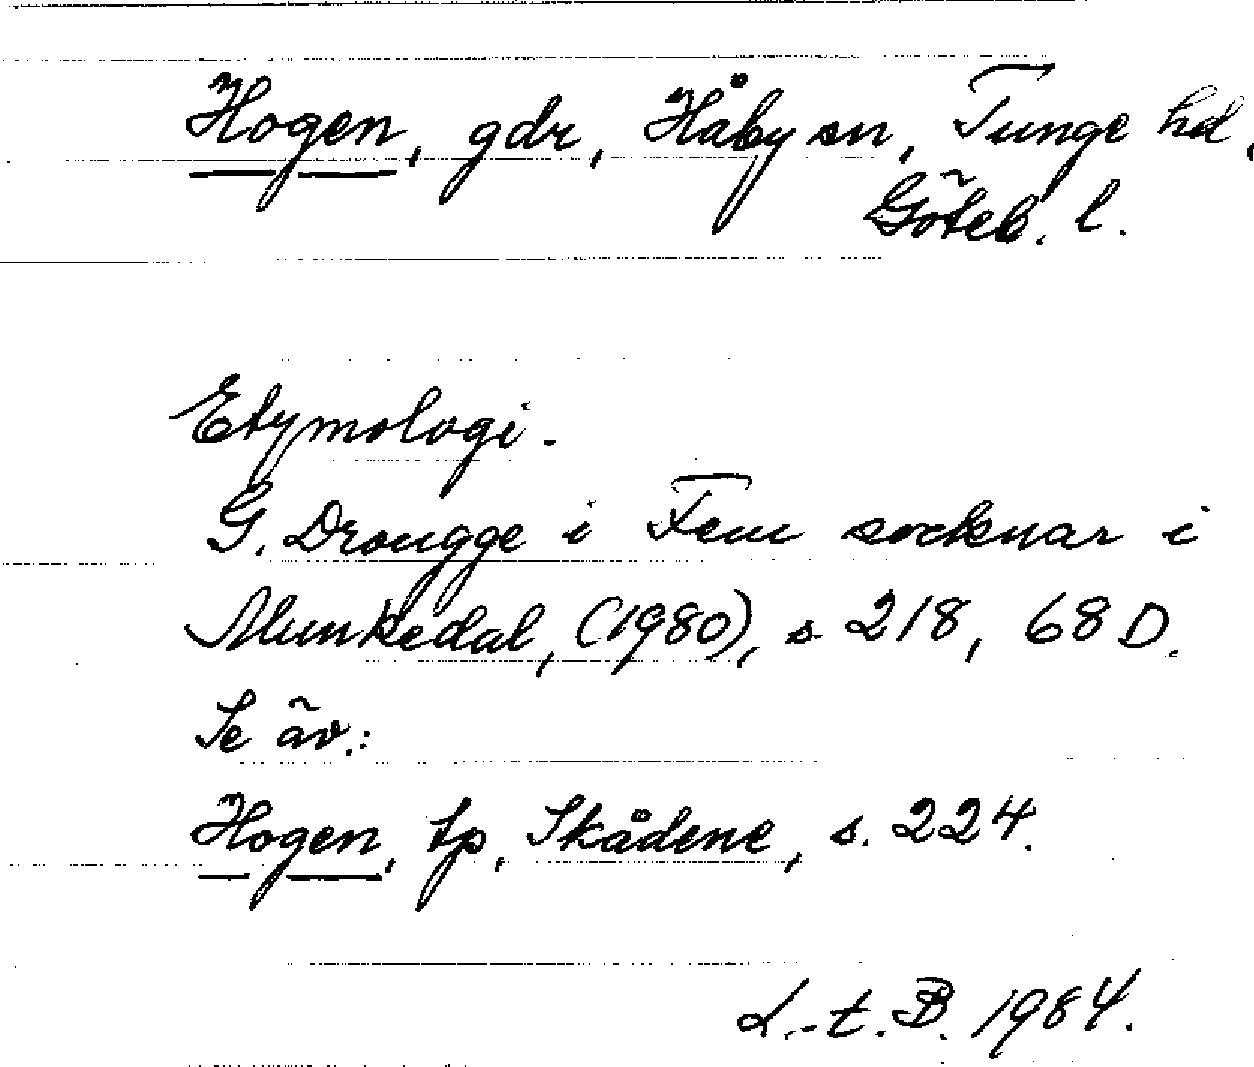 Hogen, gdr, Håby sn, Tunge hd,
Göteb. l.
Etymologi.
G. Drougge i Fem socknar i
Munkedal, (1980), s 218, 68 D.
Se äv.:
Hogen, tp, Skådene, s. 224.
L.-t. B. 1984.